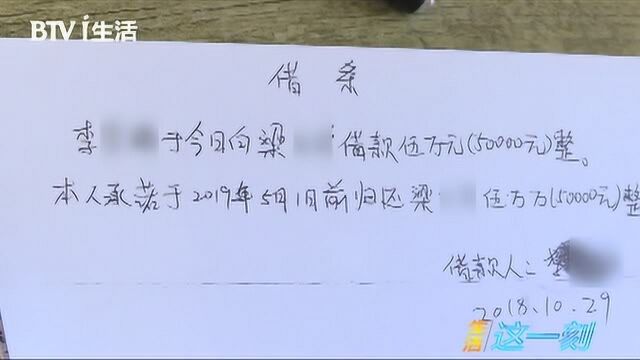 BTV i生活
借条
李 于今日向梁 借款伍万元(50000元)整。
本人承诺于2019年5月1日前归还梁 伍万万(50000元)整
借款人:
2018.10.29
生活
这一刻